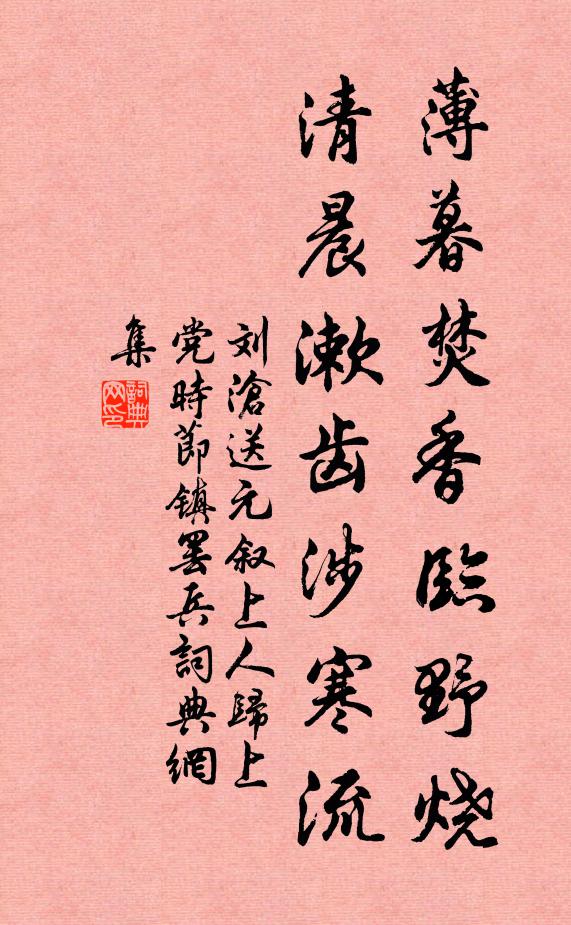 薄暮焚香臨野烧
清晨漱齿涉寒流
刘滄送元叙上人歸上
党時節镇罢兵詞典網
集
詞典网印